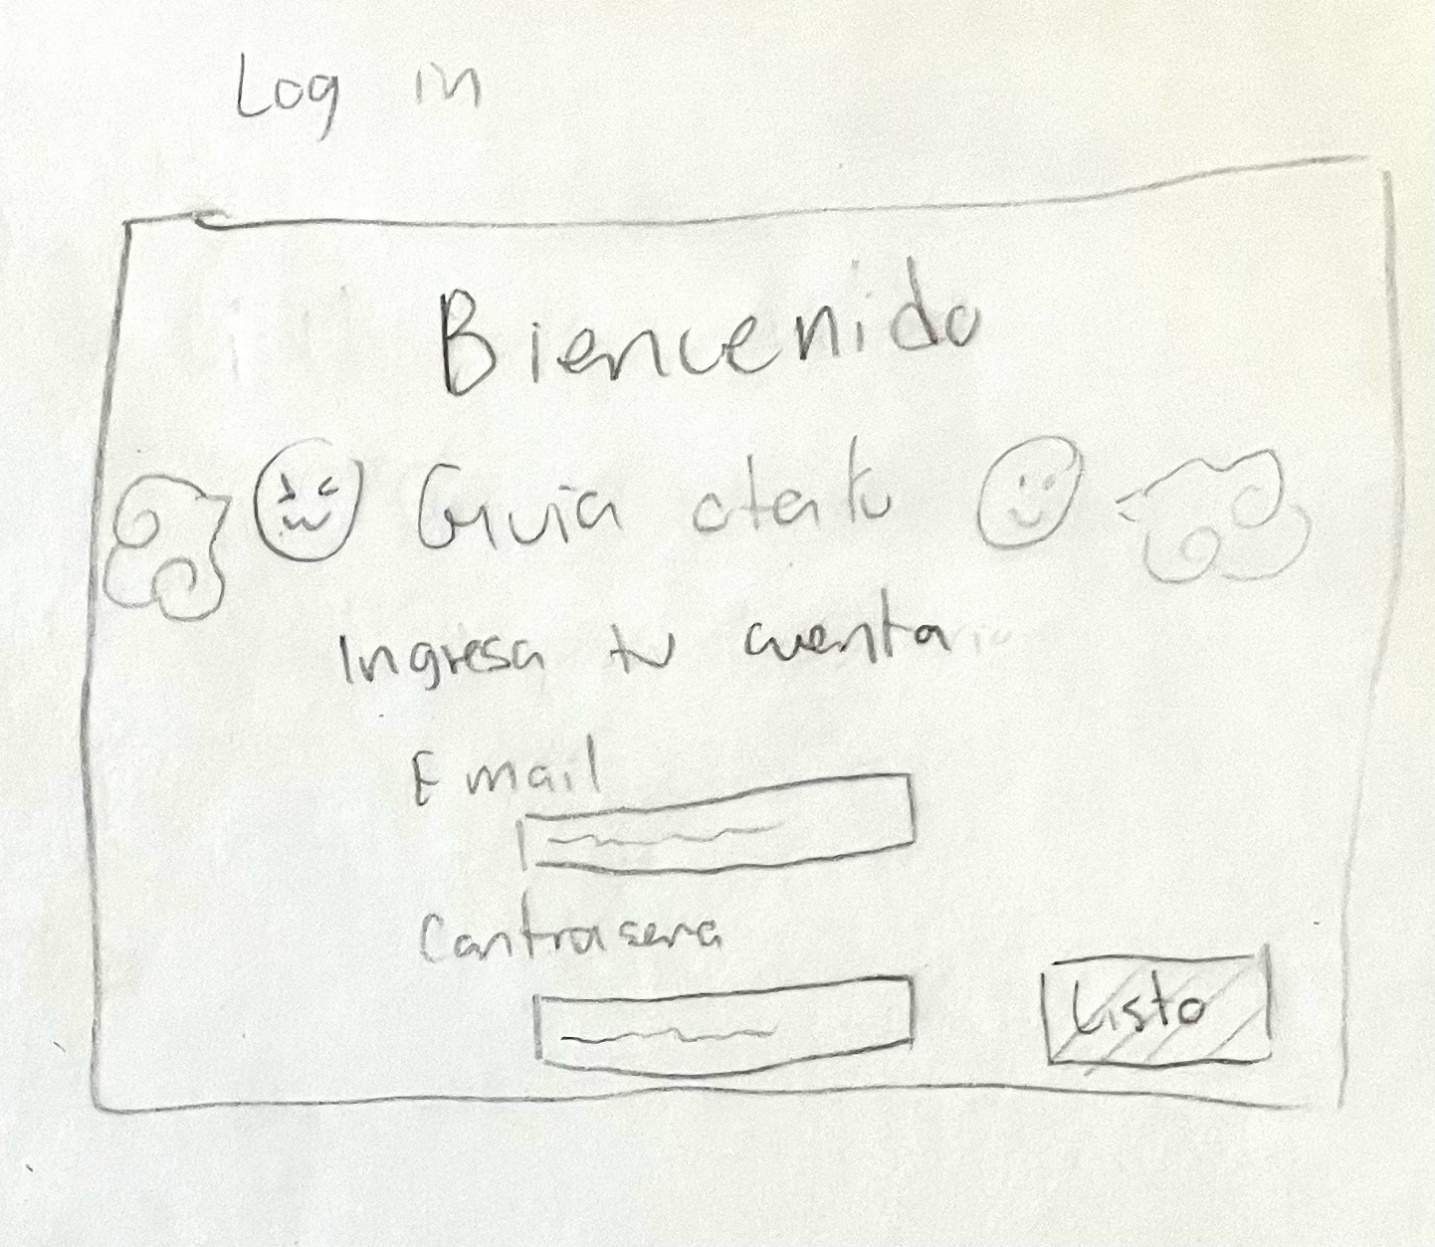 Log in
Bienvenido
Guia
Ingresa tu cuenta
Email
Contrasena
Listo